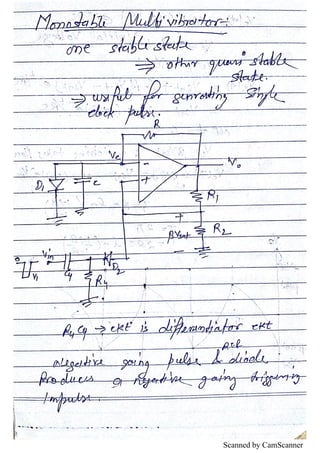 Monostable Multivibrator:-
one stable state
⇒ other quasi stable
state.
⇒ useful for generating single
clock pulse.
R
Vc
-
+
Vo
D1
C
R1
+
βVout
R2
-
Vin
C4
D2
R4
R4C4 → ckt is differentiator ckt
Negative going pulse & diode
Produces a negative going triggering
impulse.
Scanned by CamScanner